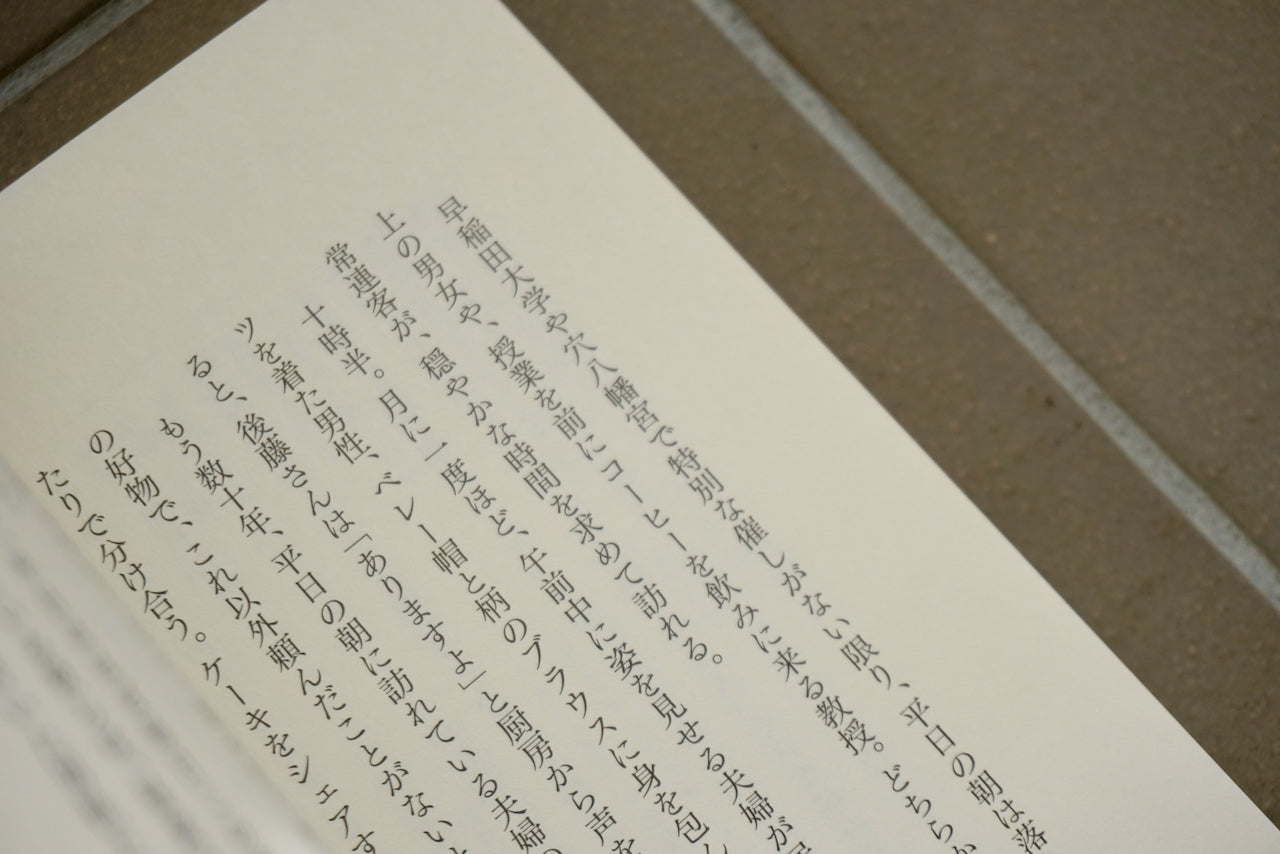 早稲田大学や穴八幡宮で特別な催しがない限り、平日の朝は落
上の男女や、授業を前にコーヒーを飲みに来る教授。どちらか
常連客が、穏やかな時間を求めて訪れる。
十時半。月に一度ほど、午前中に姿を見せる夫婦が
ツを着た男性、ベレー帽と柄のブラウスに身を包ん
ると、後藤さんは「ありますよ」と厨房から声を
もう数十年、平日の朝に訪れている夫婦の
の好物で、これ以外頼んだことがないと
たりで分け合う。ケーキをシェアす